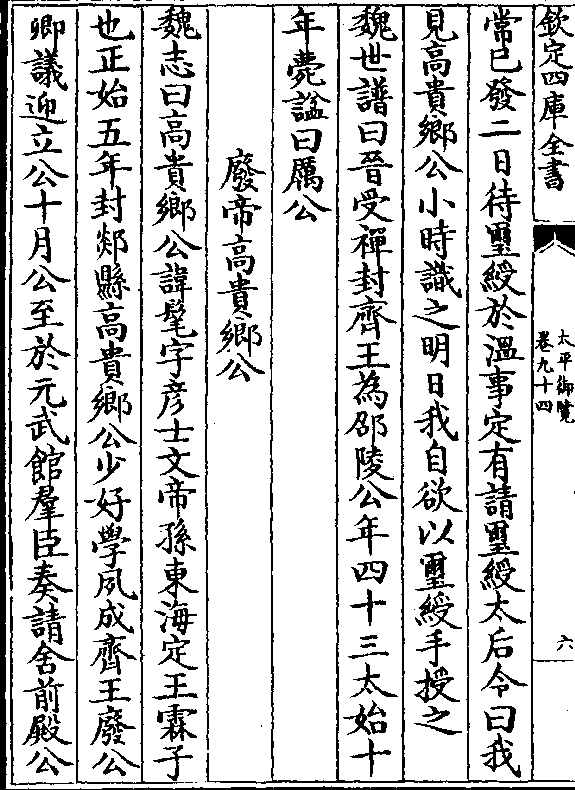 欽定四庫全書
太平御覽
卷九十四
六
常已發二日待璽綬於溫事定有請璽綬太后令曰我
見高貴鄉公小時識之明日我自欲以璽綬手授之
魏世譜曰晉受禪封齊王為邵陵公年四十三太始十
年薨諡曰厲公
廢帝高貴鄉公
魏志曰高貴鄉公諱髦字彥士文帝孫東海定王霖子
也正始五年封郯縣高貴鄉公少好學夙成齊王廢公
卿議迎立公十月公至於元武館羣臣奏請舍前殿公